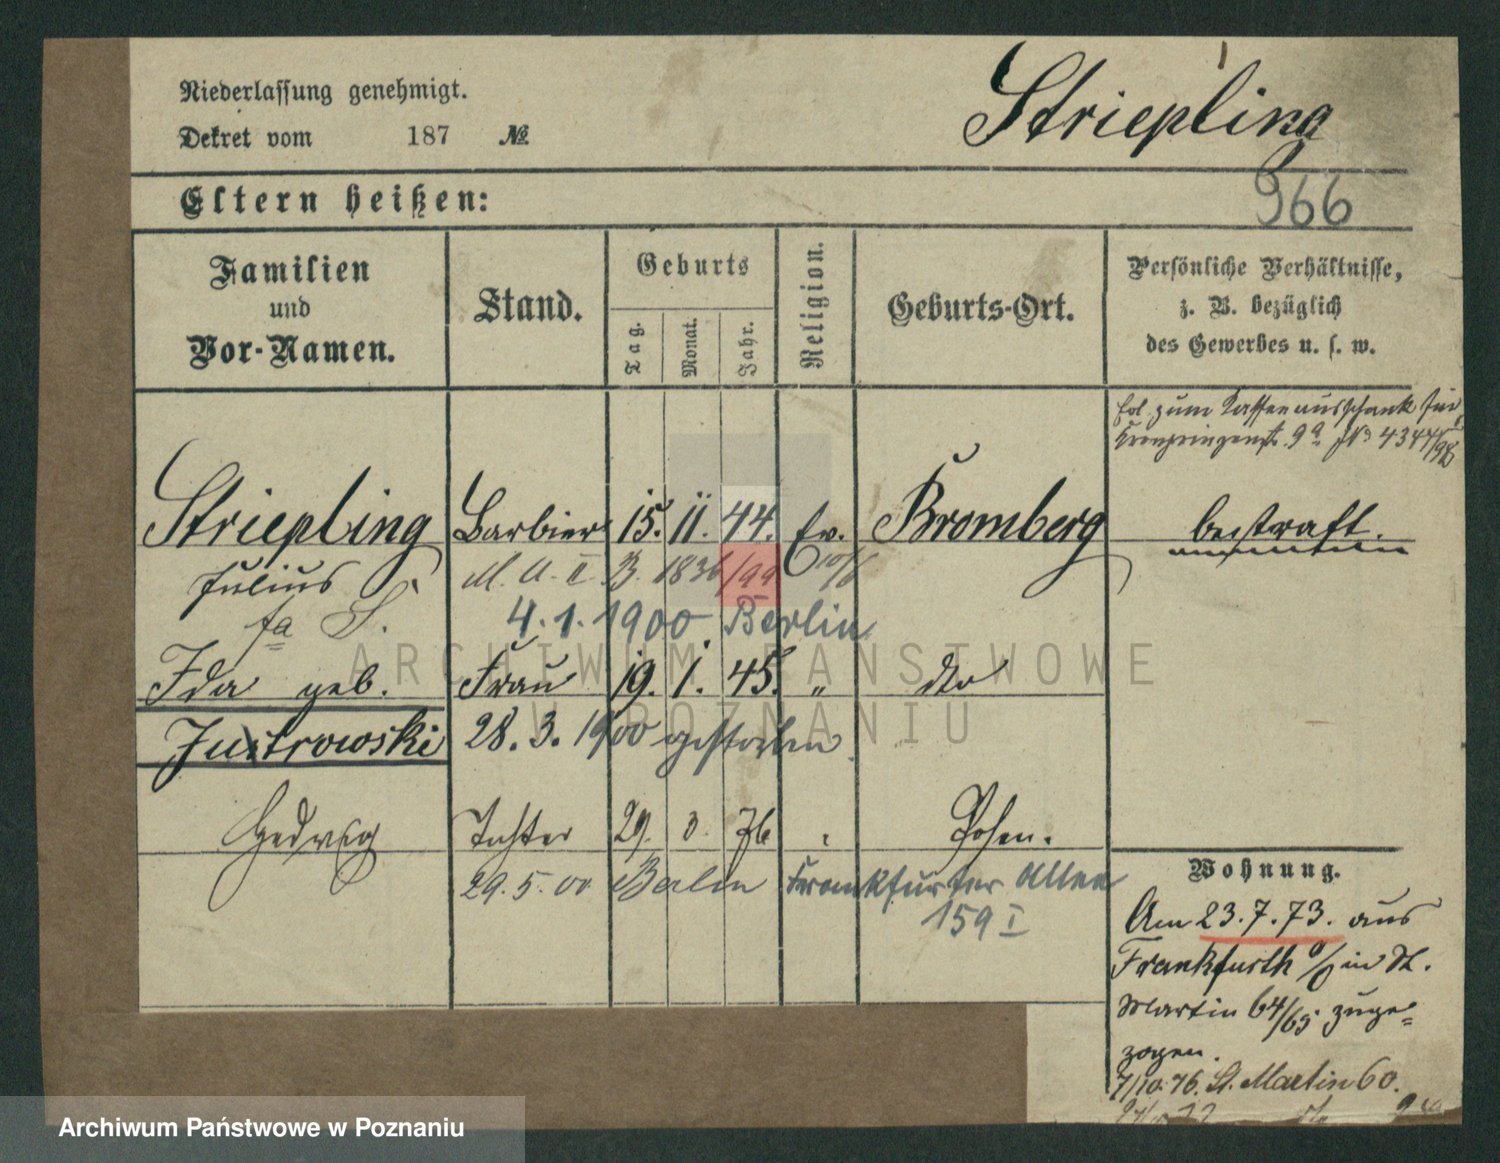 Niederlassung genehmigt.
Dekret vom 187 №
Striepling
966
Eltern heißen:
Familien
und
Vor-Namen.
Stand.
Geburts
Tag.
Monat.
Jahr.
Religion.
Geburts-Ort.
Persönliche Verhältnisse,
z. B. bezüglich
des Gewerbes u. s. w.
zum Kaffeeausschank
Kronprinzenstr. 9a No 4344/98
Striepling Barbier 15. 11. 44. Ev. Bromberg bestraft.
Julius M. A. II. B. 1836/99 10/6
fa S. 4.1.1900 Berlin
Ida geb. Frau 19. 1. 45. " dto
Justrowski 28.3.1900 gestorben
Hedwig Tochter 29. 3. 76 Posen.
29.5.00 Berlin Frankfurter Allee
159 I
Wohnung.
Am 23.7.73. aus
Frankfurth a/O in St.
Martin 64/65 zuge=
zogen.
7/10.76. St. Martin 60.
ARCHIWUM PAŃSTWOWE
W POZNANIU
Archiwum Państwowe w Poznaniu